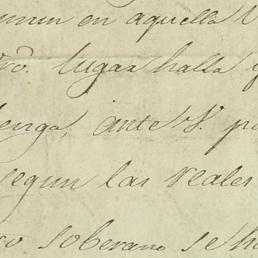 en aquella
lugar halla y
tenga, ante V.
segun las reales
soberano se ha